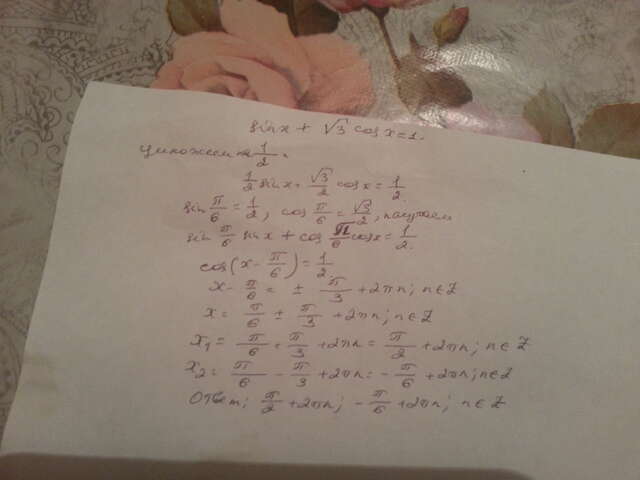 sin x + √3 cos x = 1.
умножим на 1/2.
1/2 sin x + √3/2 cos x = 1/2.
sin π/6 = 1/2, cos π/6 = √3/2, получаем
sin π/6 sin x + cos π/6 cos x = 1/2.
cos(x - π/6) = 1/2
x - π/6 = ± π/3 + 2πn; n∈Z
x = π/6 ± π/3 + 2πn; n∈Z
x₁ = π/6 + π/3 + 2πn = π/2 + 2πn; n∈Z
x₂ = π/6 - π/3 + 2πn = - π/6 + 2πn; n∈Z
Ответ: π/2 + 2πn; - π/6 + 2πn; n∈Z